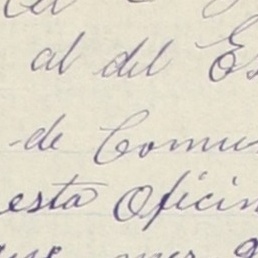 al del Es
de Comun
esta Oficin
que